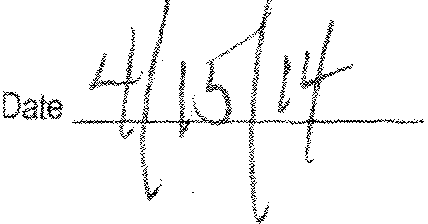 Date 4/15/14